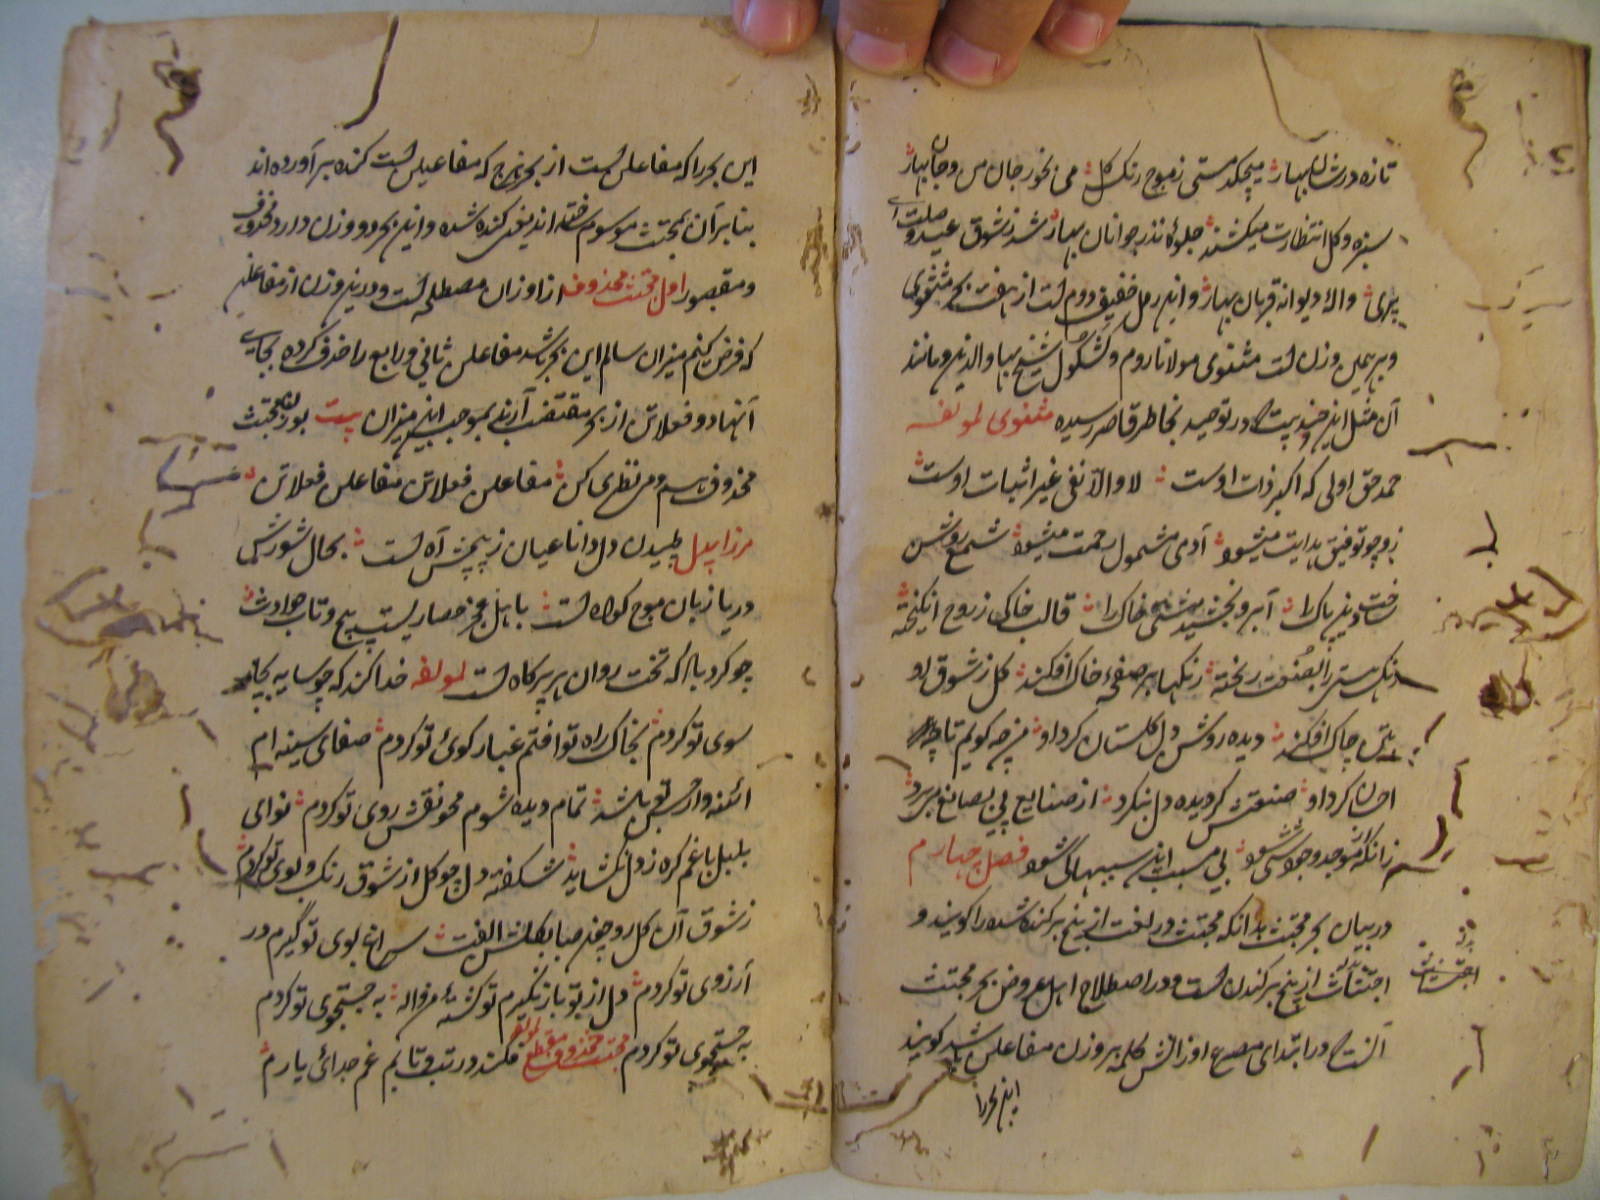 تازه در شان بهار میچکد مستی ز موج رنک کل می نخور جان من و جان بهار
سبزه و کل انتظارت میکشند جلوهٔ نذر جوانان بهار شد ز شوق عید وصلت ای
پری والا دیوانه قربان بهار و این رمل خفیف دوم است از هفت بحر مثنوی
و بر همین وزن است مثنوی مولانا روم و کشکول شیخ بهاوالدین و مانند
آن مثل این چند بیت که در توحید بخاطر قاصر رسیده مثنوی لمولفه
حمد حق اولی که اکبر ذات اوست لا و الا نفی غیر اثبات اوست
زو چو توفیق هدایت میشود آدمی مشمول رحمت میشود شمع روشن
ساخت دین پاک را آبرو بخشید مشتی خاک را قالب خاکی ز روح انکیخته
رنک هستی را بصنعت ریخته رنکها بر صفحهٔ خاک افکند کل ز شوق او
چاک افکند دیده روشن دل کلستان کرد او من چه کویم تا چه
احسان کرد او صنعتش کر دیده دل بنکرد از صنایع پی بصانع میبرد
زانکه موجد وجودش شود بی مسبب این سببها کی شود فصل چهارم
در بیان بحر مجتث بدانکه مجتث در لغت از بیخ برکنده شده را کویند و
اجتثاث از بیخ برکندن است و در اصطلاح اهل عروض بحر مجتث
آنست که در ابتدای مصرع اوزانش کلمه بر وزن مفاعلن باشد کویند
این بحر را
این بحر را که مفاعلن است از بحر هزج که مفاعیلن است کنده برآورده اند
بنابرآن بمجتث موسوم ساخته اند یعنی کنده شده و این بحر دو وزن دارد محذوف
و مقصور اول مجتث محذوف از اوزان مصطلح است و در این وزن از مفاعلن
که فرض کنم میزان سالم این بحر باشد مفاعلن ثانی و رابع را حذف کرده بجای
آنها دو فعلاتن از بحر مقتضب آرند بموجب این میزان بیت بود مجتث
محذوف اسم و من نظری کن مفاعلن فعلاتن مفاعلن فعلاتن
مرزا بیدل طپیدن دل دانا عیان ز پیچش آه است بحال شورش
دریا زبان موج کواه است باهل عجز حصاریست پیچ و تاب حوادث
چو کردباد که تخت روان هر پر کاه است لمولفه خدا کند که چو سایه بجا
سوی تو کردم بخاک راه تو افتم غبار کوی تو کردم صفای سینه ام
آئنه وار باشد تمام دیده شوم محو نقش روی تو کردم نوای
بلبل باغم کره ز دل نکشاید شکفته دل چو کل از شوق رنک و بوی تو کردم
ز شوق آن کل رو چند صبا بکلشن الفت سراغ بوی تو کیرم در
آرزوی تو کردم دل از تو باز نکیرم تو کشتهٔ من واله به جستجوی تو کردم
به جستجوی تو کردم مجتث محذوف مقطع لمولفه فکند در تب و تابم غم جدائی یارم